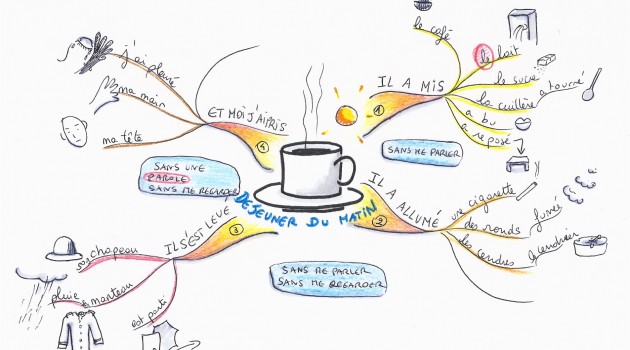 DÉJEUNER DU MATIN
① IL A MIS
le café
le lait
le sucre
la cuillère a tourné
a bu
a reposé
SANS ME PARLER
② IL A ALLUMÉ
une cigarette
des ronds fumée
les cendres le cendrier
SANS ME PARLER
SANS ME REGARDER
③ IL S'EST LEVÉ
son chapeau
pluie manteau
est parti
SANS UNE
PAROLE
SANS ME REGARDER
④ ET MOI J'AI PRIS
ma tête
ma main
j'ai pleuré